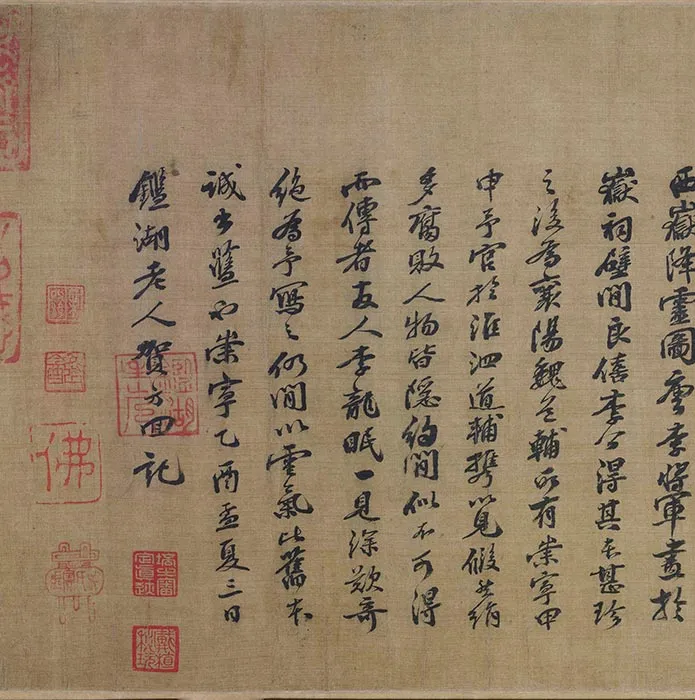 西嶽降靈圖唐李將軍畫於
嶽祠壁間良僖李公得其本甚珍
之後為襄陽魏道輔所有崇寧甲
申予官於淮泗道輔攜以見假其絹
多腐敗人物皆隱約間似不可得
而傳者友人李龍眠一見深歎奇
絕為予寫之仍間以雲氣比舊本
誠出藍也崇寧乙酉孟夏三日
鑑湖老人賀方回記
佛